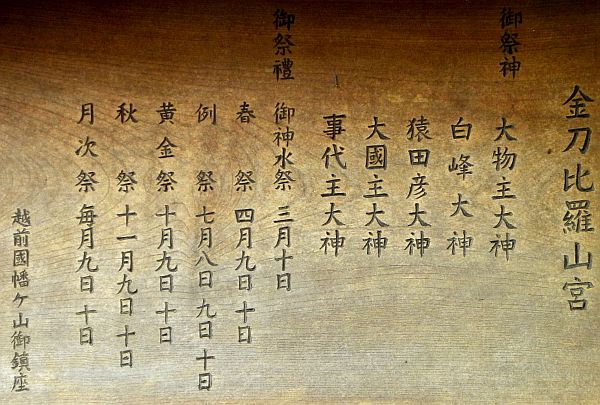 金刀比羅山宮
御祭神
大物主大神
白峰大神
猿田彦大神
大國主大神
事代主大神
御祭禮
御神水祭 三月十日
春祭 四月九日十日
例祭 七月八日九日十日
黄金祭 十月九日十日
秋祭 十一月九日十日
月次祭 毎月九日十日
越前國幡ケ山御鎮座